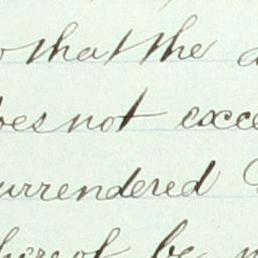 that the
does not excee
surrendered
thereof be